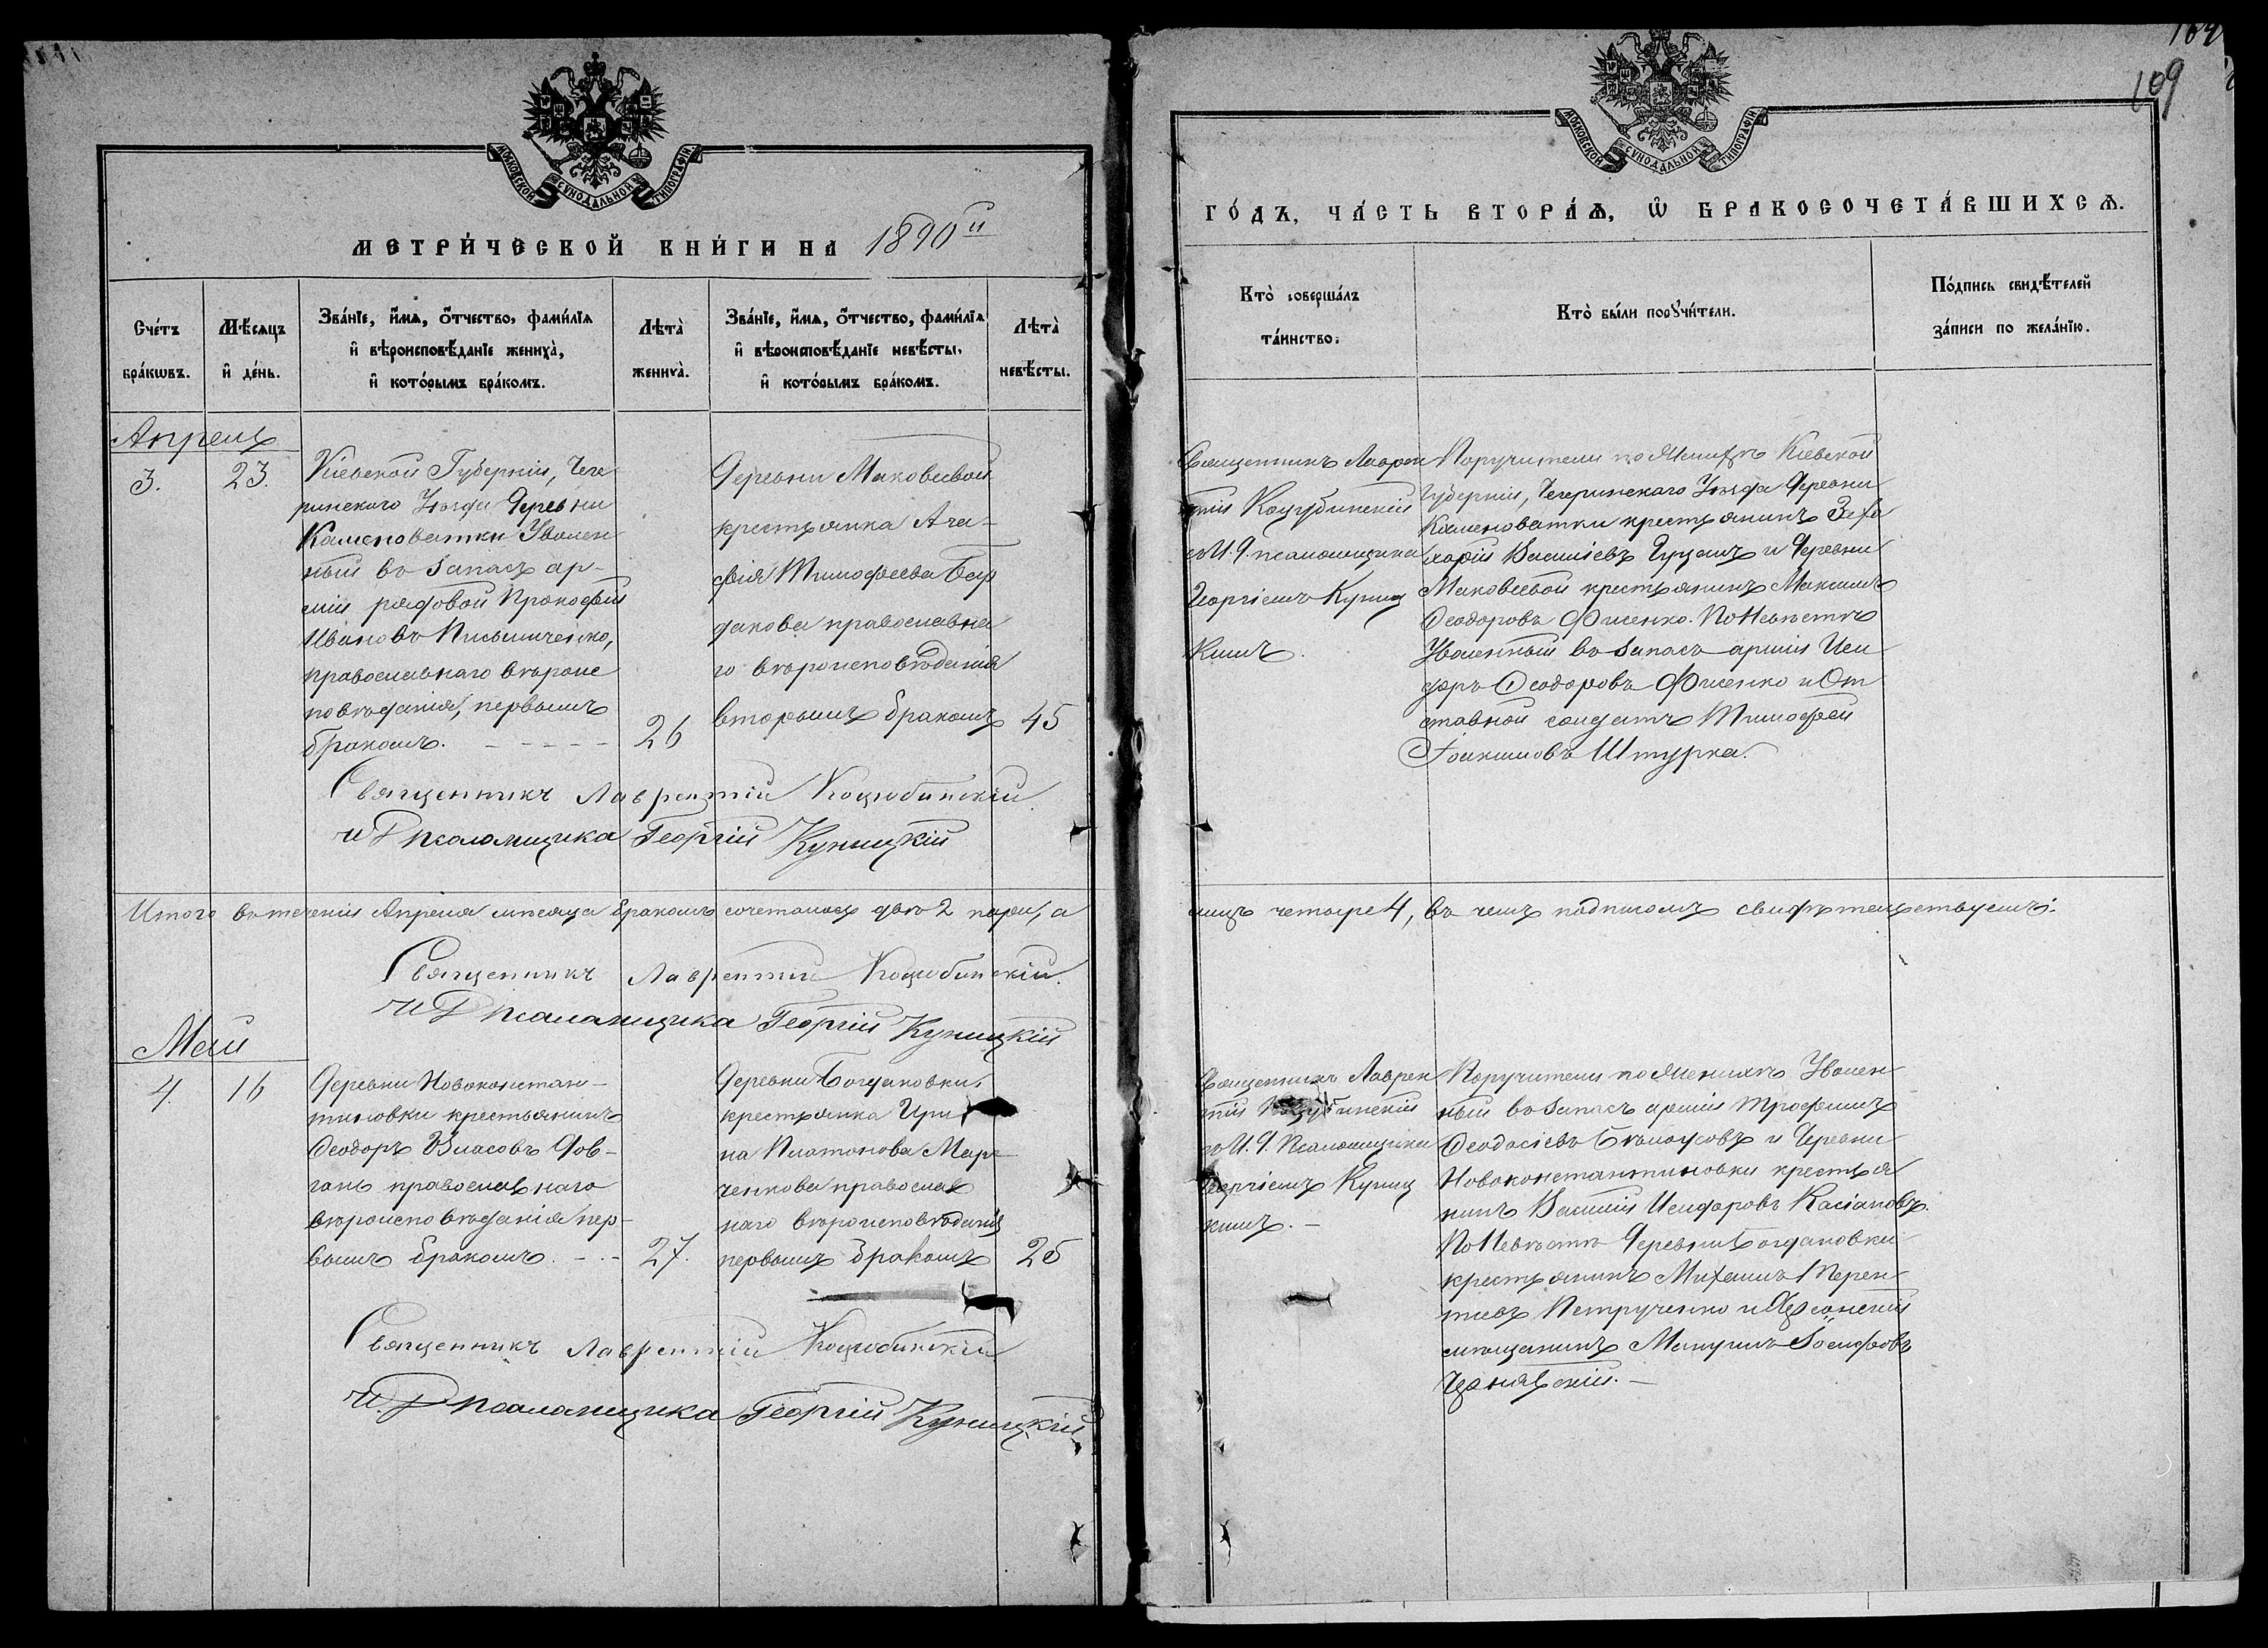 МОСКОВСКОЙ СѴНОДАЛЬНОЙ ТИПОГРАФІИ
МЕТРИ́ЧЕСКОЙ КНИ́ГИ НА 1890й
Сче́тъ бра́кѡвъ.
Мѣ́сяцъ и҆ де́нь.
Зва́нїе, и҆́мѧ, ѻ҆́тчество, фами́лїѧ
и҆ вѣроисповѣ́данїе жениха̀,
и҆ кото́рымъ бра́комъ.
Лѣта̀ жениха̀.
Зва́нїе, и҆́мѧ, ѻ҆́тчество, фами́лїѧ
и҆ вѣроисповѣ́данїе невѣ́сты,
и҆ кото́рымъ бра́комъ.
Лѣта̀ невѣ́сты.
Апрель
3.
23.
Кіевской Губерніи, Чеге
ринского Уѣзда Деревни
Каменоватки Уволен
ный въ запасъ ар-
міи рядовой Прокофій
Ивановъ Письмиченко,
православнаго вѣроис
повѣданія, первымъ
бракомъ. - - - - -
26
Деревни Маковеевой
крестьянка Ага-
фія Тимофеева Бар
дакова православна
го вѣроисповѣданія
вторымъ бракомъ
45
Священникъ Лаврентій Коцюбинскій
И Д псаломщика Георгій Куницкій
Итого въ теченіи Апреля мѣсяца бракомъ сочеталось двѣ 2 пары, а
Священникъ Лаврентій Коцюбинскій.
И Д псаломщика Георгій Куницкій
Май
4.
16
Деревни Новоконстан-
тиновки крестьянинъ
Ѳеодоръ Власовъ Дов-
гань православнаго
вѣроисповѣданія пер-
вымъ бракомъ. - . -
27.
Деревни Богдановки
крестьянка Ири
на Платонова Мар
ченкова православ
наго вѣроисповѣданія
первымъ бракомъ
25
Священникъ Лаврентій Коцюбинскій
И. Д псаломщика Георгій Куницкій
109
МОСКОВСКОЙ СѴНОДАЛЬНОЙ ТИПОГРАФІИ
ГО́ДЪ, ЧА́СТЬ ВТОРА́Ѧ, Ѡ҆ БРАКОСОЧЕТА́ВШИХСѦ.
Кто̀ соверша́лъ
та́инство.
Кто̀ бы́ли порꙋчи́тели.
По́дпись свидѣ́телей
за́писи по жела́нїю.
Священникъ Лаврен
тій Коцубинскій
съ И. Д. псаломщика
Георгіемъ Куниц
кимъ.
Поручители по Женихѣ Кіевской
Губерніи, Чегеринскаго Уѣзда Деревни
Каменоватки крестьянинъ Заха
харій Васильевъ Гуцалъ и Деревни
Маковеевой крестьянинъ Максимъ
Ѳеодоровъ Фисенко. По Невѣстѣ
Уволенный въ запасъ арміи Иси
доръ Ѳеодоровъ Фисенко и От
ставной солдатъ Тимофей
Іоакимовъ Штурка.
лицъ четыре 4, въ чемъ подписомъ свидѣтельствуемъ:
Священникъ Лаврен
тій Коцубинскій
съ И. Д. Псаломщика
Георгіемъ Куниц
кимъ. -
Поручители по Женихѣ Уволен
ный въ запасъ арміи Трофимъ
Ѳеодосіевъ Бѣлоусовъ и Деревни
Новоконстантиновки крестья
нинъ Василій Исидоровъ Касіановъ.
По Невѣстѣ Деревни Богдановки
крестьянинъ Михаилъ Терен
тіевъ Петрученко и Херсонскій
мѣщанинъ Мануилъ Іосифовъ
Чернявскій. -